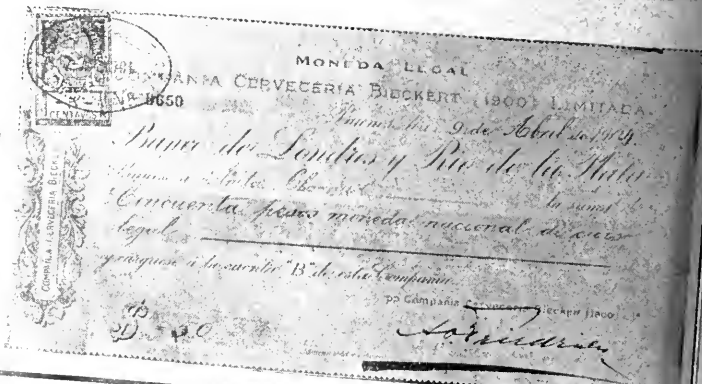 MONEDA LEGAL
COMPAÑIA CERVECERIA BIECKERT (1900) LIMITADA
Nº 8650
CENTAVOS
Buenos Aires 9 de Abril de 1904
Banco de Londres y Rio de la Plata
Páguese á la suma de
Cincuenta pesos moneda nacional de curso
legal
y cárguese á la cuenta "B" de esta Compañia
pp Compañia Cerveceria Bieckert (1900) Lda
COMPAÑIA CERVECERIA BIECKERT